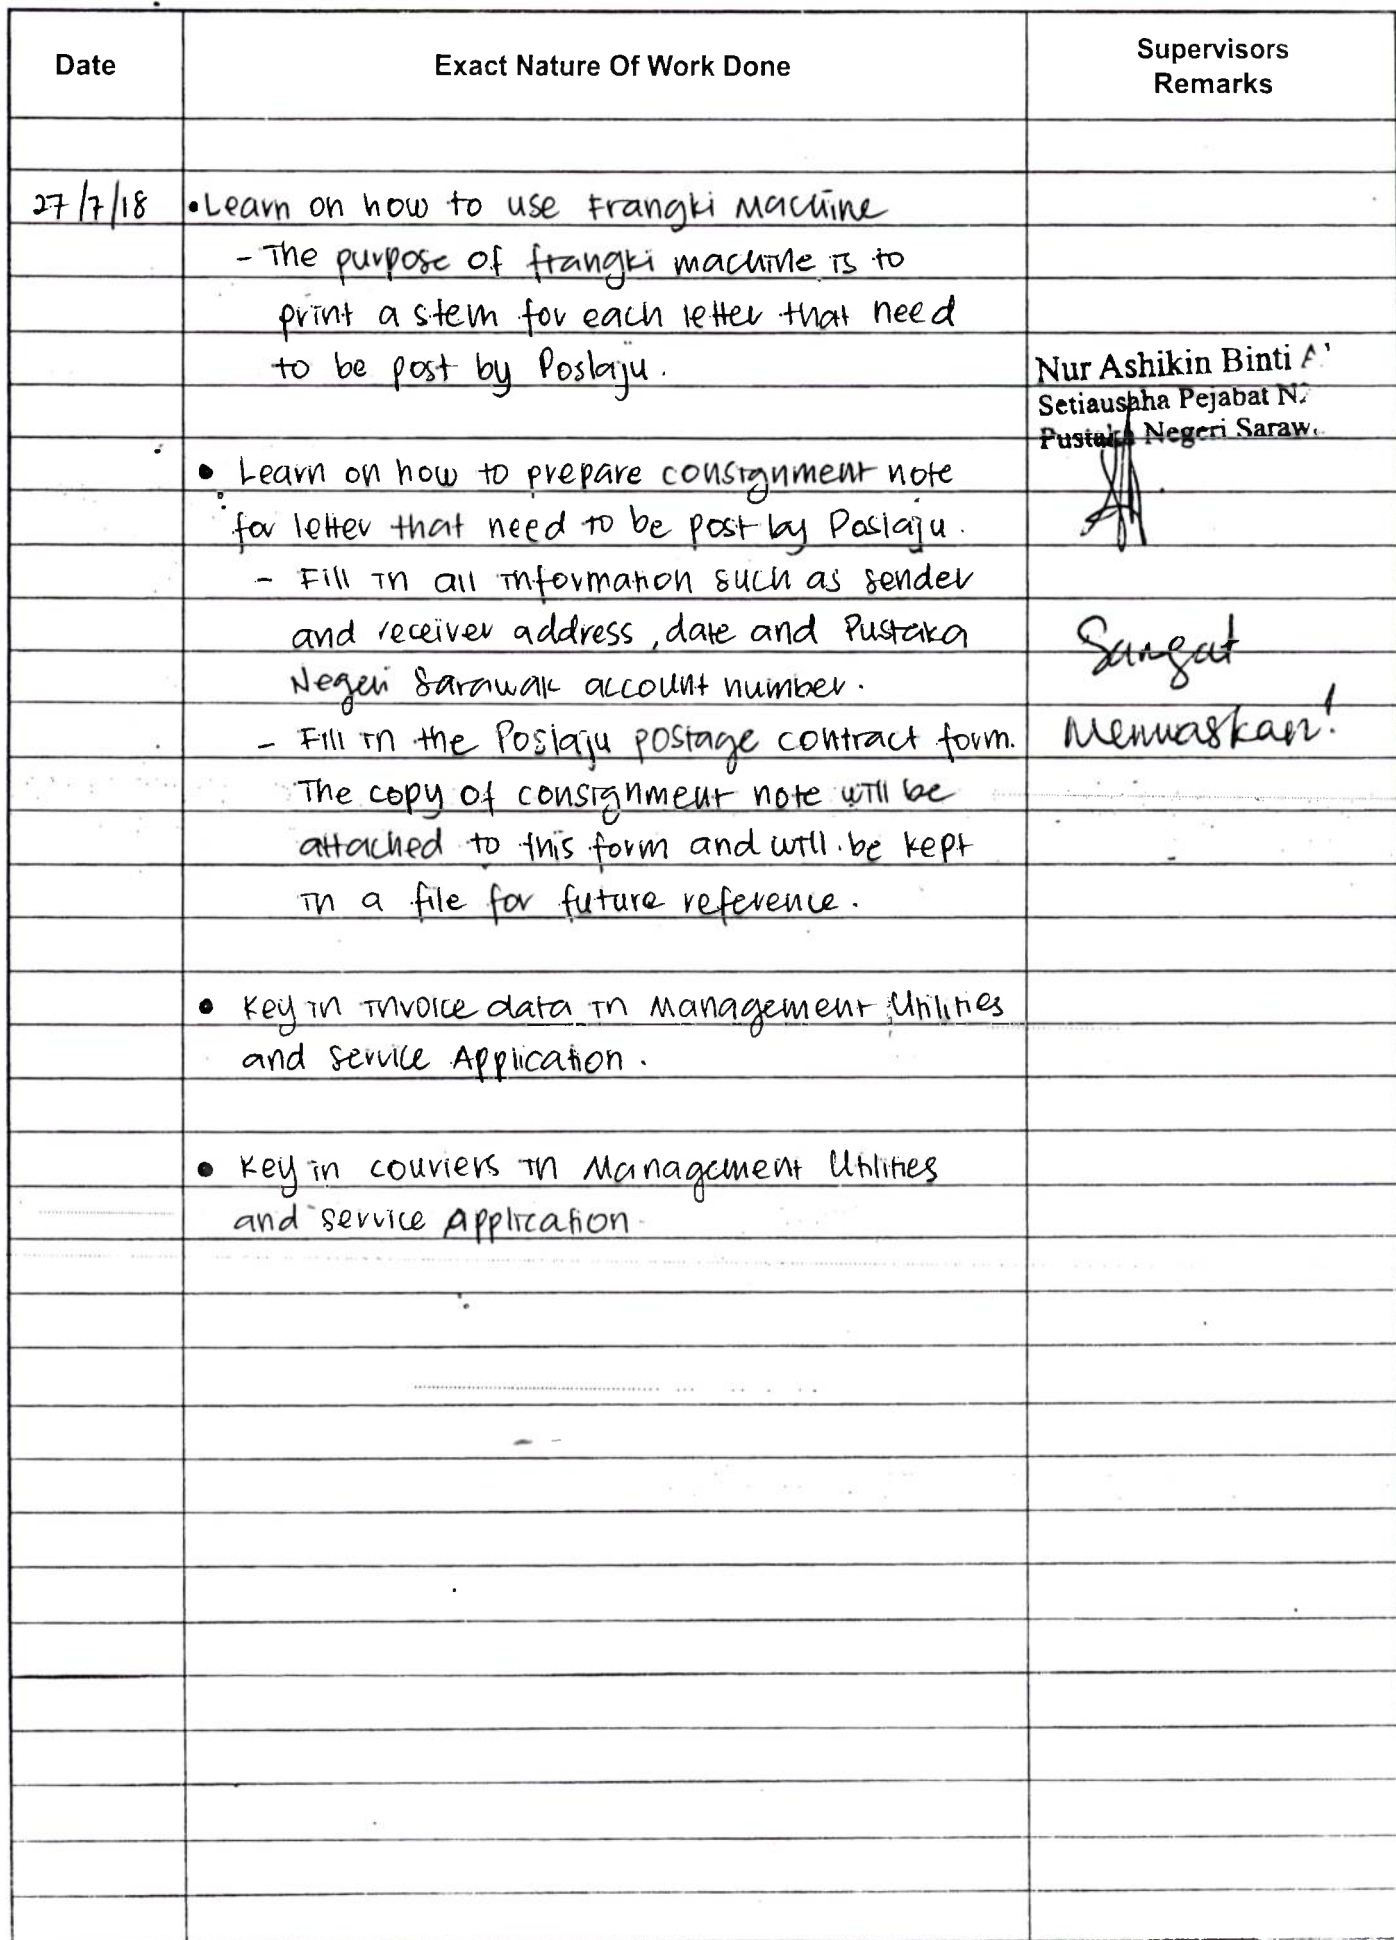 Date
Exact Nature Of Work Done
Supervisors
Remarks
27/7/18
• Learn on how to use Frangki Machine
- The purpose of frangki machine is to
print a stem for each letter that need
to be post by Poslaju.
• Learn on how to prepare consignment note
for letter that need to be post by Poslaju.
- Fill in all information such as sender
and receiver address, date and Pustaka
Negeri Sarawak account number.
- Fill in the Poslaju postage contract form.
The copy of consignment note will be
attached to this form and will be kept
in a file for future reference.
• Key in invoice data in Management Utilities
and Service Application.
• Key in couriers in Management Utilities
and service Application
Nur Ashikin Binti A
Setiausaha Pejabat N
Pustaka Negeri Saraw
Sangat
Memuaskan!